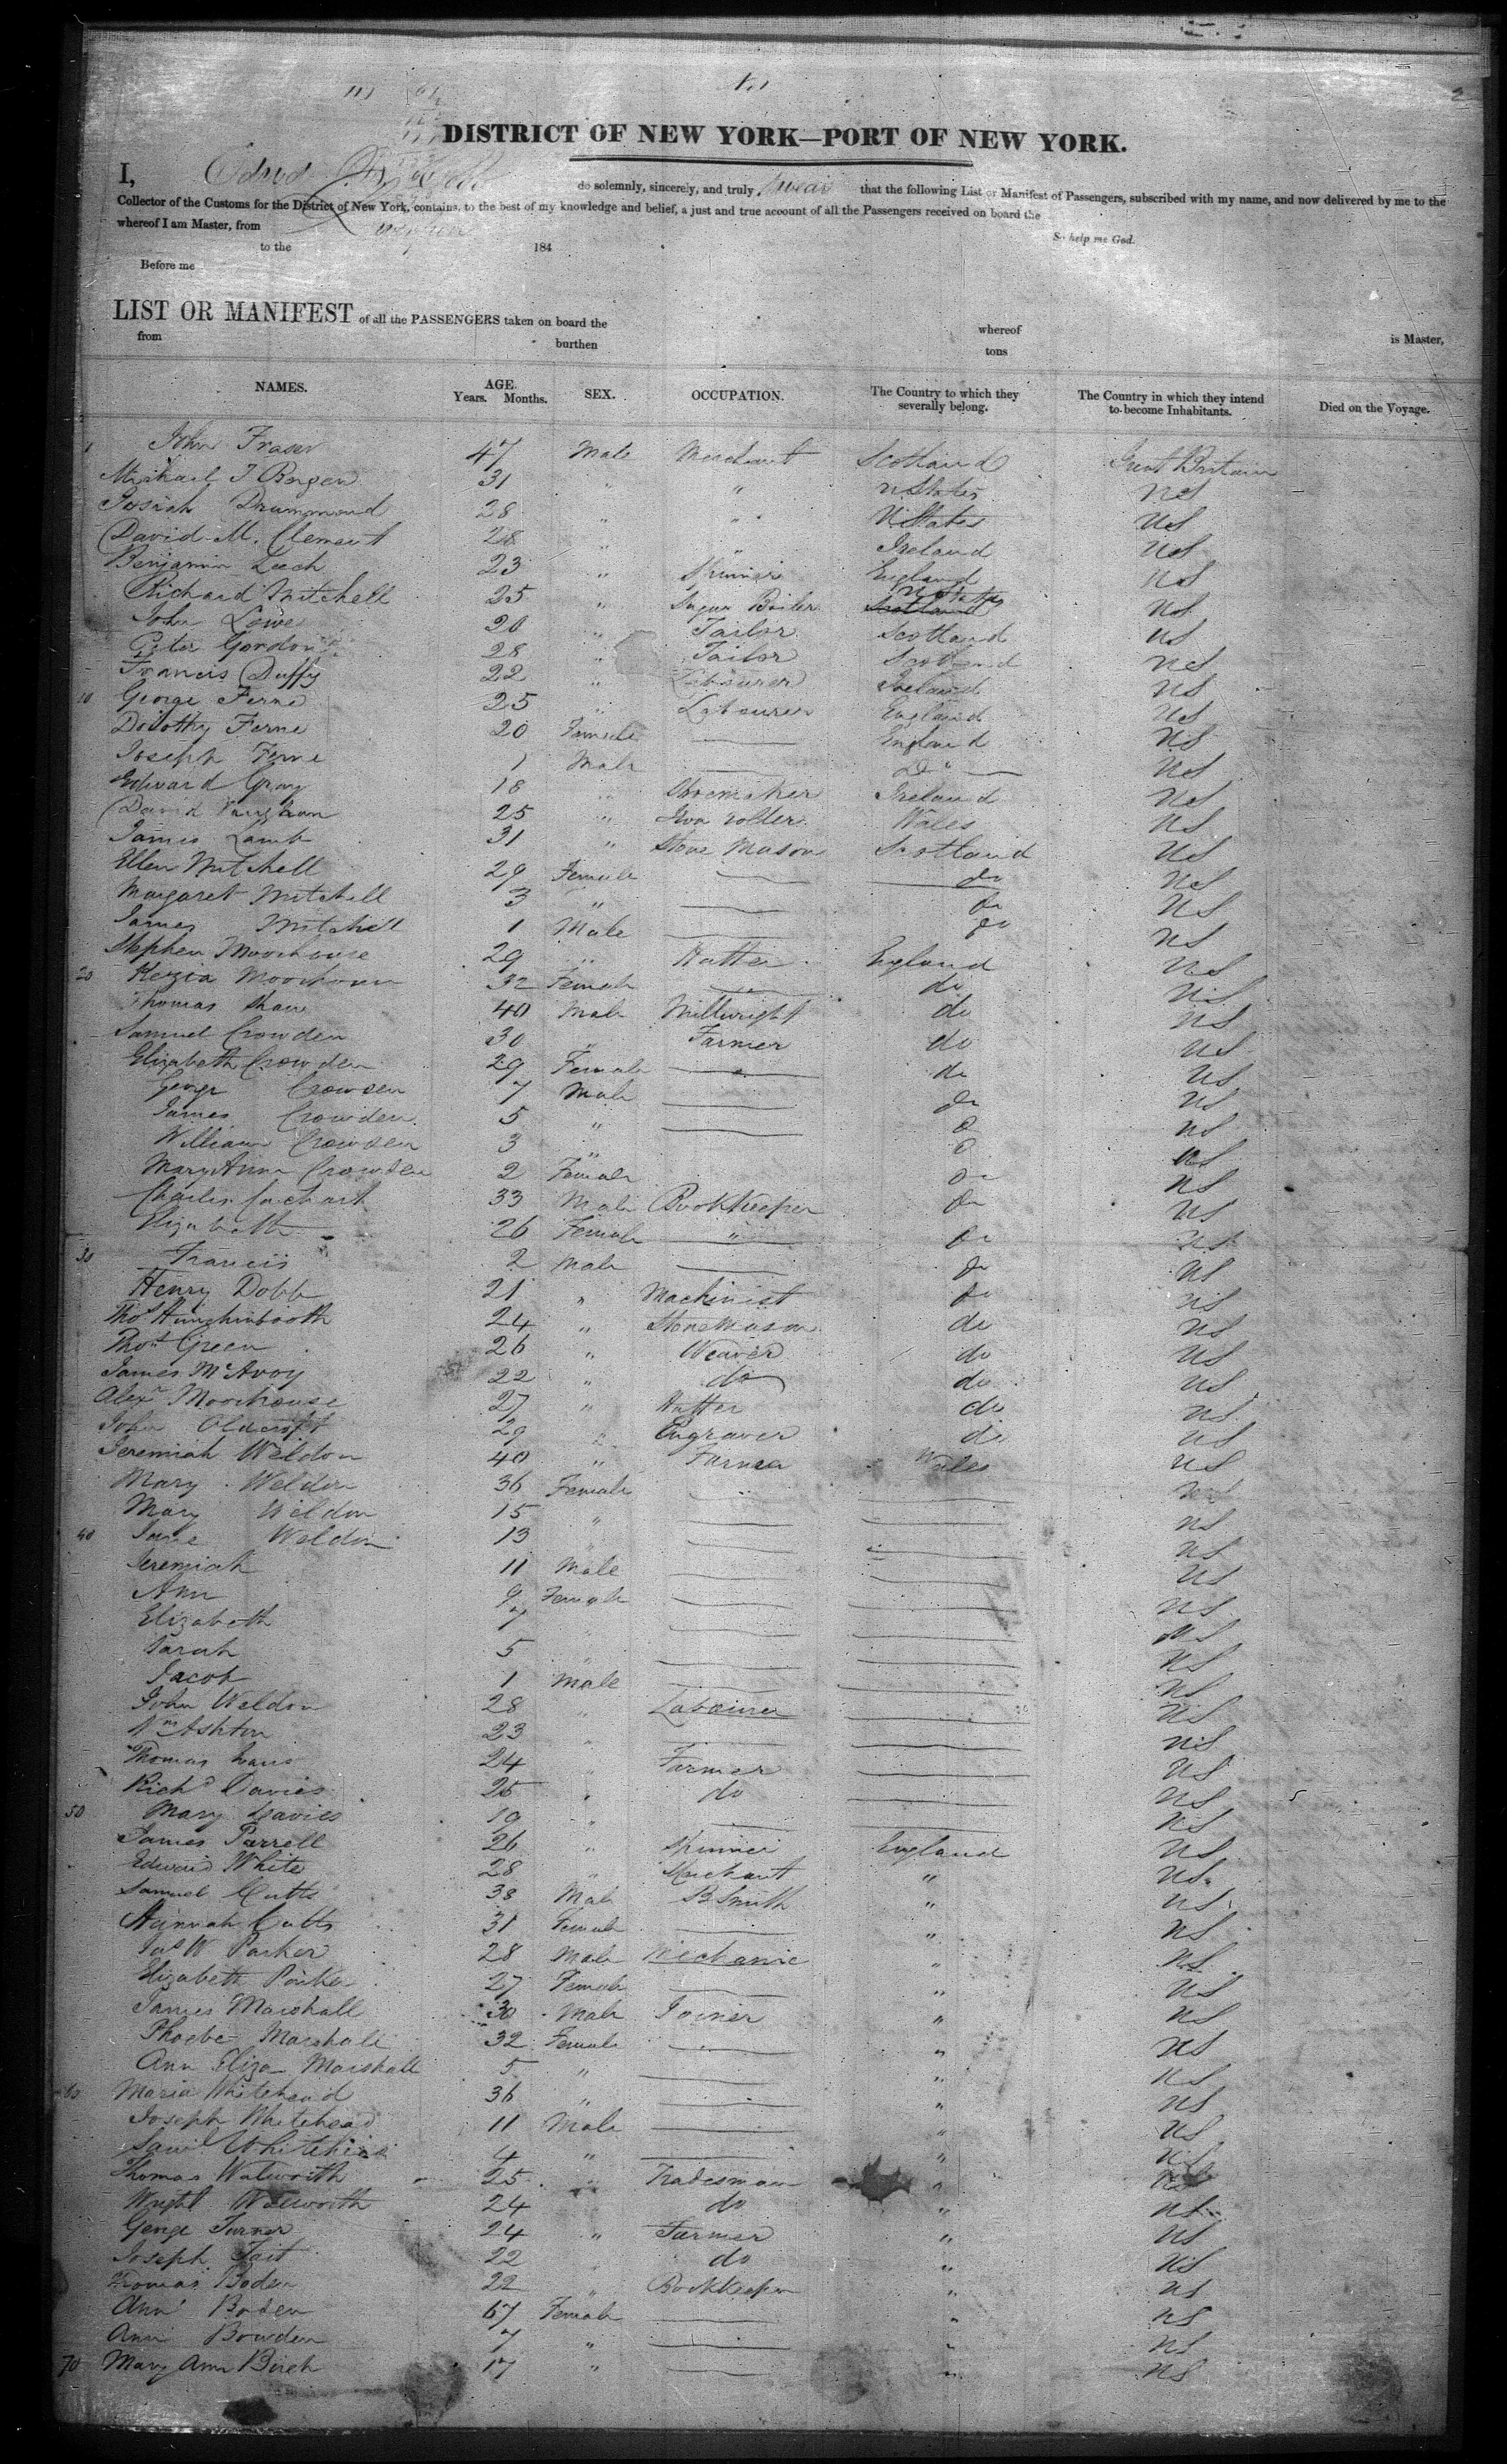 DISTRICT OF NEW YORK—PORT OF NEW YORK.
I, do solemnly, sincerely, and truly swear that the following List or Manifest of Passengers, subscribed with my name, and now delivered by me to the
Collector of the Customs for the District of New York, contains, to the best of my knowledge and belief, a just and true account of all the Passengers received on board the
whereof I am Master, from
So help me God.
to the 184
Before me
LIST OR MANIFEST of all the PASSENGERS taken on board the whereof is Master,
from burthen tons
NAMES. AGE. Years. Months. SEX. OCCUPATION. The Country to which they severally belong. The Country in which they intend to become Inhabitants. Died on the Voyage.
1 John Fraser 47 Male Merchant Scotland Great Britain
Michael J Bergen 31 " " U States US
Josiah Drummond 28 " " U States US
David M. Clement 28 " " Ireland US
Benjamin Leech 23 " Spinner England US
Richard Mitchell 25 " Sugar Boiler U States US
John Lowe 20 " Tailor Scotland US
Peter Gordon 28 " Tailor Scotland US
Francis Duffy 22 " Labourer Ireland US
10 George Ferne 25 " Labourer England US
Dorothy Ferne 20 Female England US
Joseph Ferne 1 Male Do US
Edward Gray 18 " Shoemaker Ireland US
David Vaughan 25 " Wales US
James Lamb 31 " Stone Mason Scotland US
Ellen Mitchell 29 Female do US
Margaret Mitchell 3 " do US
James Mitchell 1 Male do US
Stephen Moorhouse 29 " Hatter England US
20 Kezia Moorhouse 32 Female do US
Thomas Shaw 40 Male Millwright do US
Samuel Crowden 30 " Farmer do US
Elizabeth Crowden 29 Female do US
George Crowden 7 Male do US
James Crowden 5 " do US
William Crowden 3 " do US
Mary Ann Crowden 2 Female do US
Charles 33 Male Bookkeeper do US
Elizabeth 26 Female " do US
30 Francis 2 Male do US
Henry Dobb 21 " Machinist do US
Thos Hinchinbooth 24 " Stone Mason do US
Thos Green 26 " Weaver do US
James McAvoy 22 " do do US
Alexr Moorhouse 27 " Hatter do US
John Oldcroft 29 " Engraver do US
Jeremiah Weldon 40 " Farmer Wales US
Mary Weldon 36 Female " US
Mary Weldon 15 " US
40 Jane Weldon 13 " US
Jeremiah 11 Male US
Ann 9 Female US
Elizabeth 7 US
Sarah 5 " US
Jacob 1 Male US
John Weldon 28 " Labourer US
Wm Ashton 23 " US
Thomas Evans 24 " Farmer US
Richd Davies 25 " do US
50 Mary Davies 19 " US
James Parrell 26 " Spinner England US
Edward White 28 " Merchant " US
Samuel Cutts 38 Male B Smith " US
Hannah Cutts 31 Female " US
Jas W Parker 28 Male Mechanic " US
Elizabeth Parker 27 Female " US
James Marshall 30 Male Joiner " US
Phoebe Marshall 32 Female " US
Ann Eliza Marshall 5 " " US
60 Maria Whitehead 36 " " US
Joseph Whitehead 11 Male " US
Saml Whitehead 4 " " US
Thomas Walworth 25 " Tradesman " US
Wright Walworth 24 do " US
George Turner 24 " Farmer " US
Joseph Tait 22 " do " US
Thomas Boden 22 " Bookkeeper " US
Ann Boden 67 Female " US
Ann Bowden 7 " " US
70 Mary Ann Birch 17 " " US